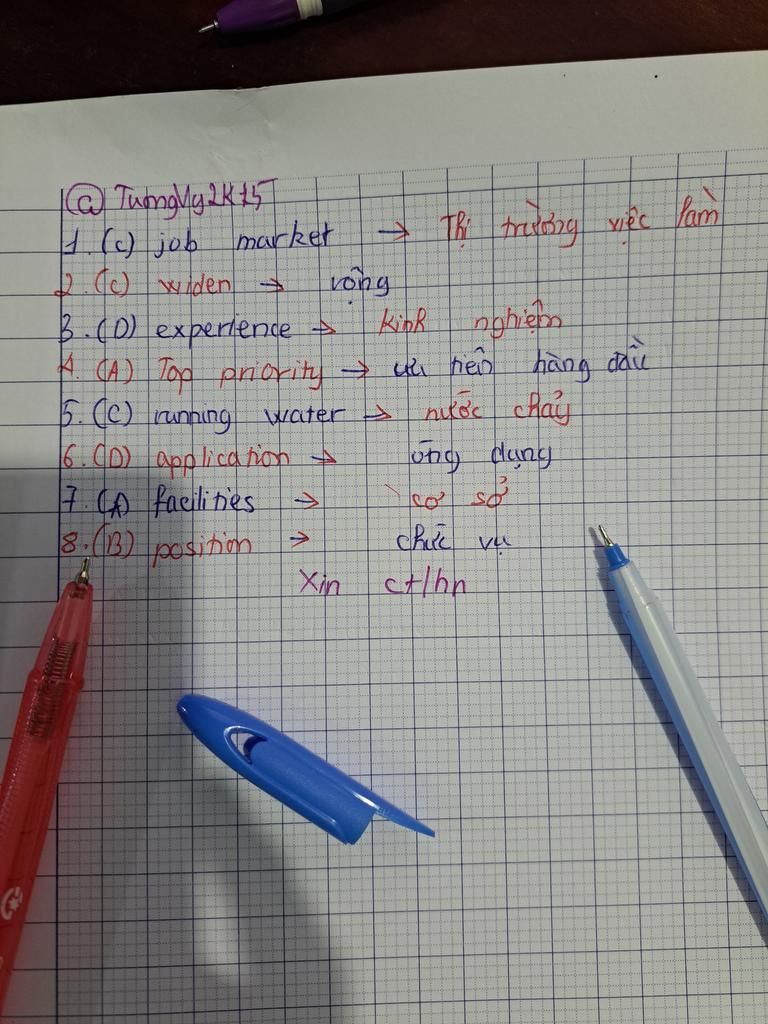 @ TuongVy2K15
1. (C) job market → Thị trường việc làm
2. (C) widen → rộng
3. (D) experience → kinh nghiệm
4. (A) Top priority → ưu tiên hàng đầu
5. (C) running water → nước chảy
6. (D) application → ứng dụng
7. (A) facilities → cơ sở
8. (B) position → chức vụ
Xin ct/hn